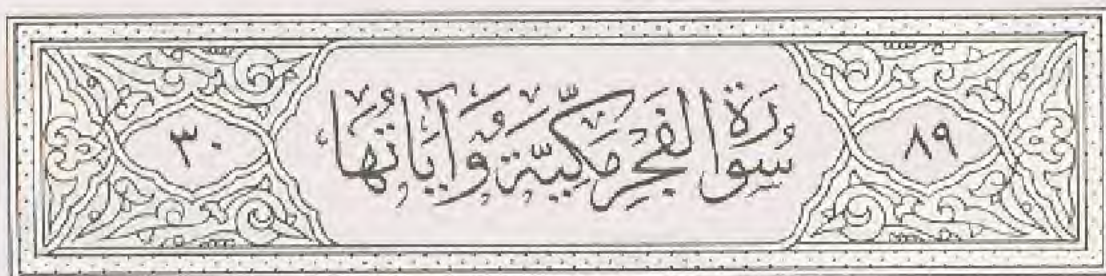 ٨٩ سُورَةُ الفَجْرِ مَكِّيَّة وَآيَاتُهَا ٣٠